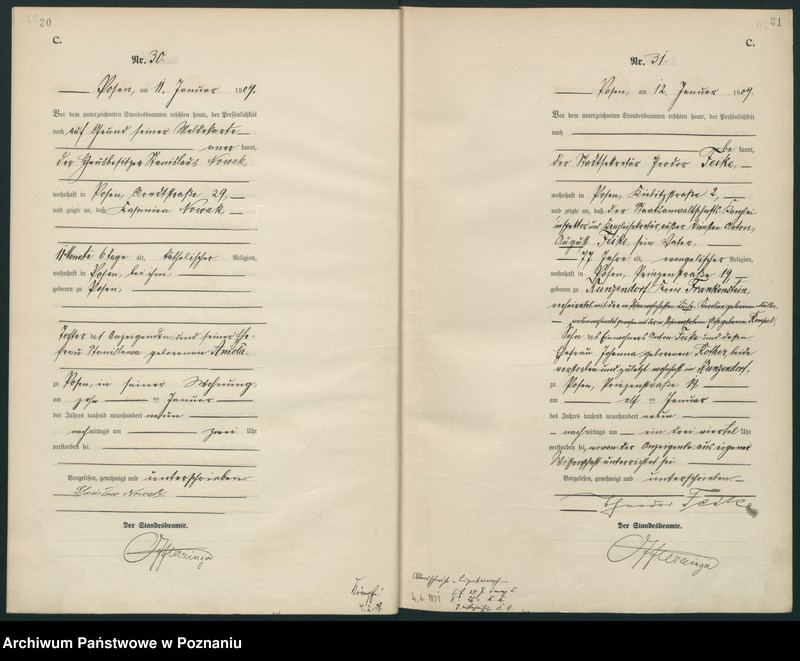 30
C.
Nr. 30.
Posen, am 11. Januar 1909.
Vor dem unterzeichneten Standesbeamten erschien heute, der Persönlichkeit
nach auf Grund seiner Meldekarte
aner kannt,
der Hausbesitzer Stanislaus Nowak,
wohnhaft in Posen, Arndtstraße 29,
und zeigte an, daß Kasimira Nowak,
11 Monate 6 Tage alt, katholischer Religion,
wohnhaft in Posen, bei ihm,
geboren zu Posen,
Tochter des Anzeigenden und seiner Ehe-
frau Stanislawa geborenen Aniola
zu Posen, in seiner Wohnung,
am zehn ten Januar
des Jahres tausend neunhundert neun
nachmittags um zwei Uhr
verstorben sei.
Vorgelesen, genehmigt und unterschrieben
Stanislaus Nowak
Der Standesbeamte.
4.2.09.
31
C.
Nr. 31.
Posen, am 12. Januar 1909.
Vor dem unterzeichneten Standesbeamten erschien heute, der Persönlichkeit
nach
be kannt,
der Stadtsekretär Theodor Feike,
wohnhaft in Posen, 2,
und zeigte an, daß der Staatsanwaltschafts-Kanzlei-
inspektor und Kanzleisekretär außer Diensten Anton,
August Feike, sein Vater,
77 Jahre alt, evangelischer Religion,
wohnhaft in Posen, Prinzenstraße 19
geboren zu Kunzendorf Kreis Frankenstein,
verheiratet mit der Karoline geborenen Müller,
Sohn des Einwohners Anton Feike und dessen
Ehefrau Johanna geborenen Rother, beide
verstorben und zuletzt wohnhaft in Kunzendorf,
zu Posen, Prinzenstraße 19
am elf ten Januar
des Jahres tausend neunhundert neun
nachmittags um ein drei viertel Uhr
verstorben sei, wovon der Anzeigende aus eigener
Wissenschaft unterrichtet sei.
Vorgelesen, genehmigt und unterschrieben
Theodor Feike
Der Standesbeamte.
Archiwum Państwowe w Poznaniu